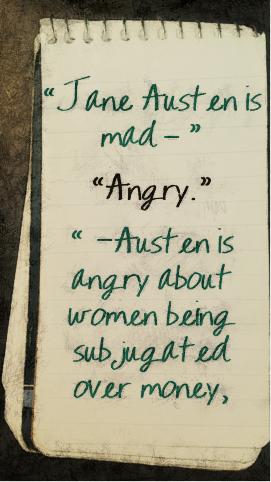 “Jane Austen is
mad – ”
“Angry.”
“ –Austen is
angry about
women being
subjugated
over money,